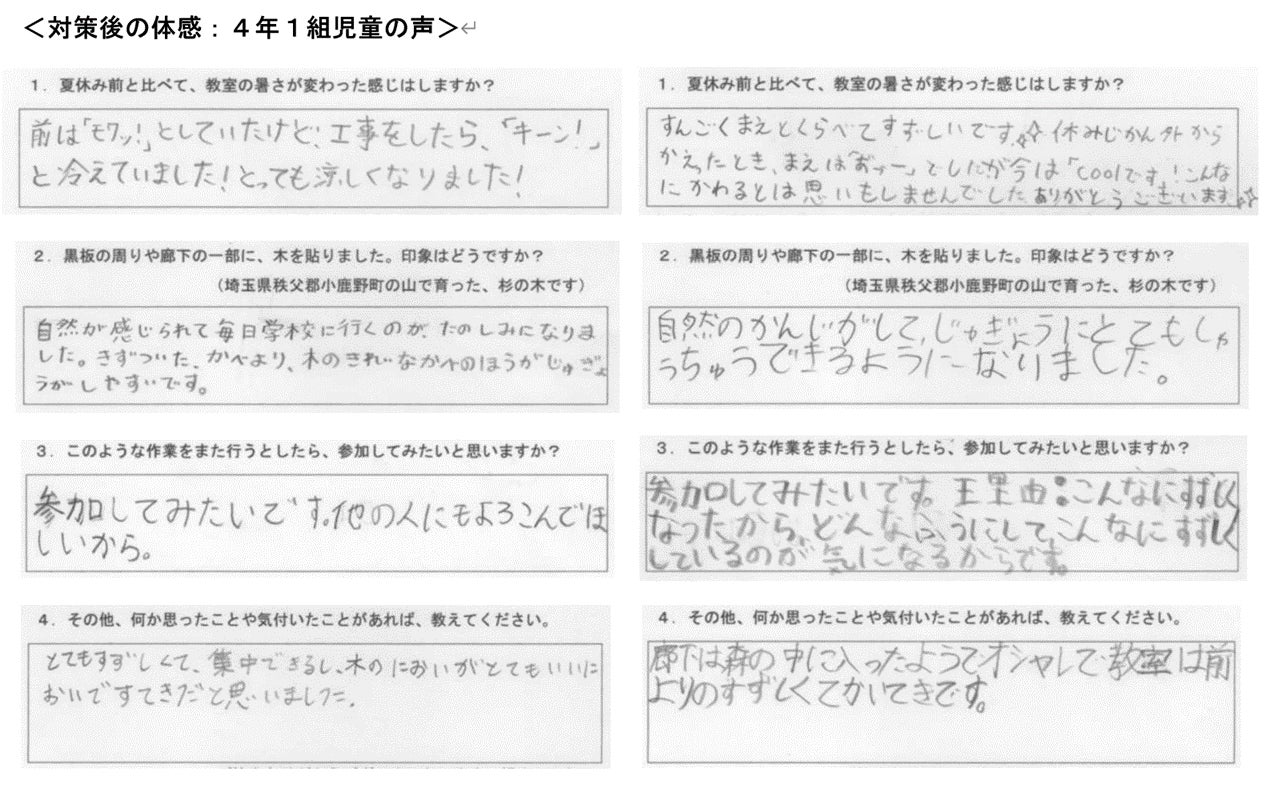 ＜対策後の体感：４年１組児童の声＞
１．夏休み前と比べて、教室の暑さが変わった感じはしますか？
前は「モワッ！」としていたけど、工事をしたら、「キーン！」
と冷えていました！とっても涼しくなりました！
２．黒板の周りや廊下の一部に、木を貼りました。印象はどうですか？
（埼玉県秩父郡小鹿野町の山で育った、杉の木です）
自然が感じられて毎日学校に行くのが、たのしみになりま
した。きずついた、かべより、木のきれいなかべのほうがじゅぎょ
うがしやすいです。
３．このような作業をまた行うとしたら、参加してみたいと思いますか？
参加してみたいです。他の人にもよろこんでほ
しいから。
４．その他、何か思ったことや気付いたことがあれば、教えてください。
とてもすずしくて、集中できるし、木のにおいがとてもいいに
おいですてきだと思いました。
１．夏休み前と比べて、教室の暑さが変わった感じはしますか？
すんごくまえとくらべてすずしいです☆休みじかん外から
かえったとき、まえは「」でしたが今は「coolです！こんな
にかわるとは思いもしませんでした ありがとうございます☆
２．黒板の周りや廊下の一部に、木を貼りました。印象はどうですか？
（埼玉県秩父郡小鹿野町の山で育った、杉の木です）
自然のかんじがして、じゅぎょうにとてもしゅ
うちゅうできるようになりました。
３．このような作業をまた行うとしたら、参加してみたいと思いますか？
参加してみたいです。王里由：こんなにすずしく
なったから、どんなふうにして、こんなにすずしく
しているのが気になるからです。
４．その他、何か思ったことや気付いたことがあれば、教えてください。
廊下は森の中に入ったようでオシャレで教室は前
よりのすずしくてかいてきです。